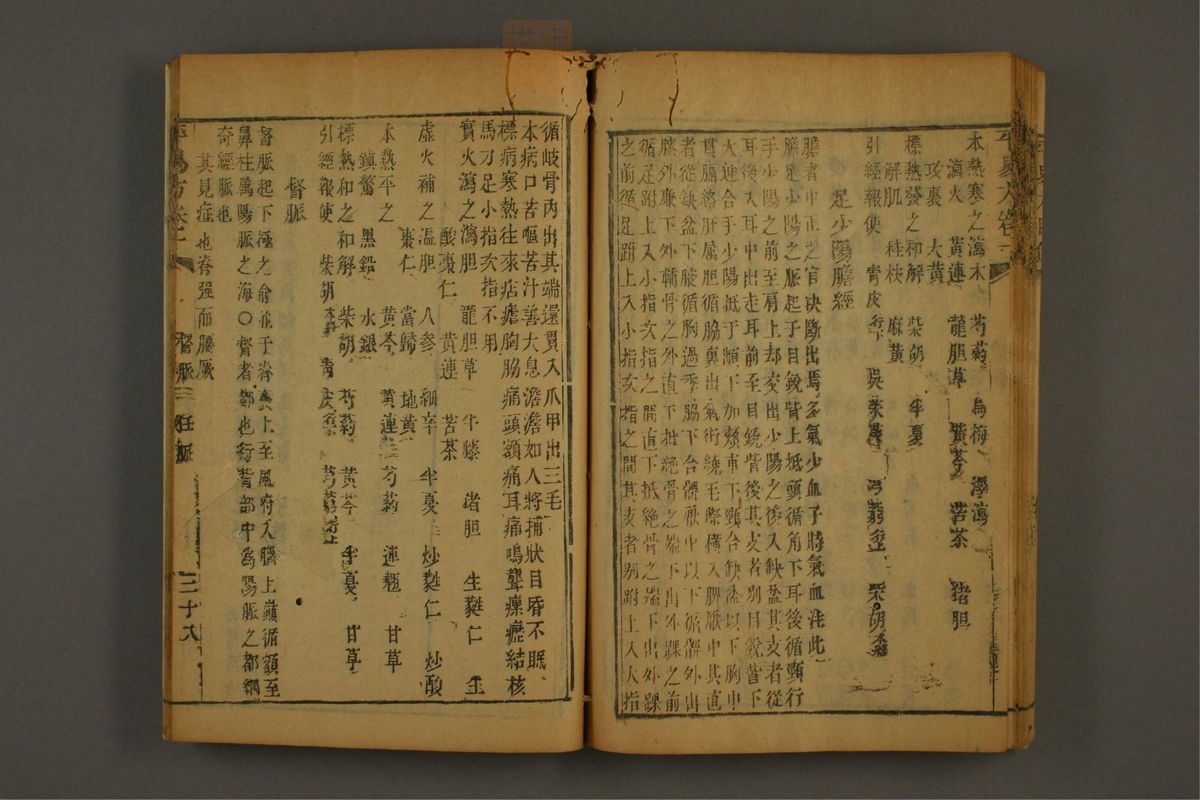 本熱寒之瀉木 芍藥 烏梅 澤瀉
瀉火 黃連 龍胆草 黃芩 苦茶 猪胆
攻裏 大黃
標熱發之和解 柴胡 半夏
解肌 桂枝 麻黃
引經報使 青皮 吳茱萸 川芎 柴胡
足少陽膽經
膽者中正之官决斷出焉多氣少血子時氣血注此
膽足少陽之脈起于目銳眥上抵頭循角下耳後循頸行
手少陽之前至肩上却交出少陽之後入缺盆其支者從
耳後入耳中出走耳前至目銳眥後其支者別目銳眥下
大迎合手少陽抵于䪼下加頰車下頸合缺盆以下胸中
貫膈絡肝属胆循脇裏出氣街繞毛際橫入髀厭中其直
者從缺盆下腋循胸過季脇下合髀厭中以下循髀外出
膝外廉下外輔骨之外直下抵絶骨之端下出外踝之前
循足跗上入小指次指之間直下抵絶骨之端下出外踝
之前循足跗上入小指次指之間其支者别跗上入大指
循岐骨內出其端還貫入爪甲出三毛
本病口苦嘔苦汁善大息澹澹如人將捕狀目昏不眠
標病寒熱往來痁瘧胸脇痛頭額痛耳痛鳴聾瘰癧結核
馬刀足小指次指不用
實火瀉之瀉胆 龍胆草 牛膝 猪胆 生蕤仁 生
酸棗仁 黃連 苦茶
虛火補之溫胆 人參 細辛 半夏 炒蕤仁 炒酸
棗仁 當歸 地黃
本熱平之 黃芩 黃連 芍藥 連翹 甘草
鎮驚 黑鉛 水銀
標熱和之和解 柴胡 芍藥 黃芩 半夏 甘草
引經報使 柴胡 青皮 川芎
督脈
督脈起下極之俞並于脊裏上至風府入腦上巔循額至
鼻柱属陽脈之海〇督者都也行背部中爲陽脈之都綱
奇經脈也
其見症也脊强而腰厥
督脈 任脈
三十六